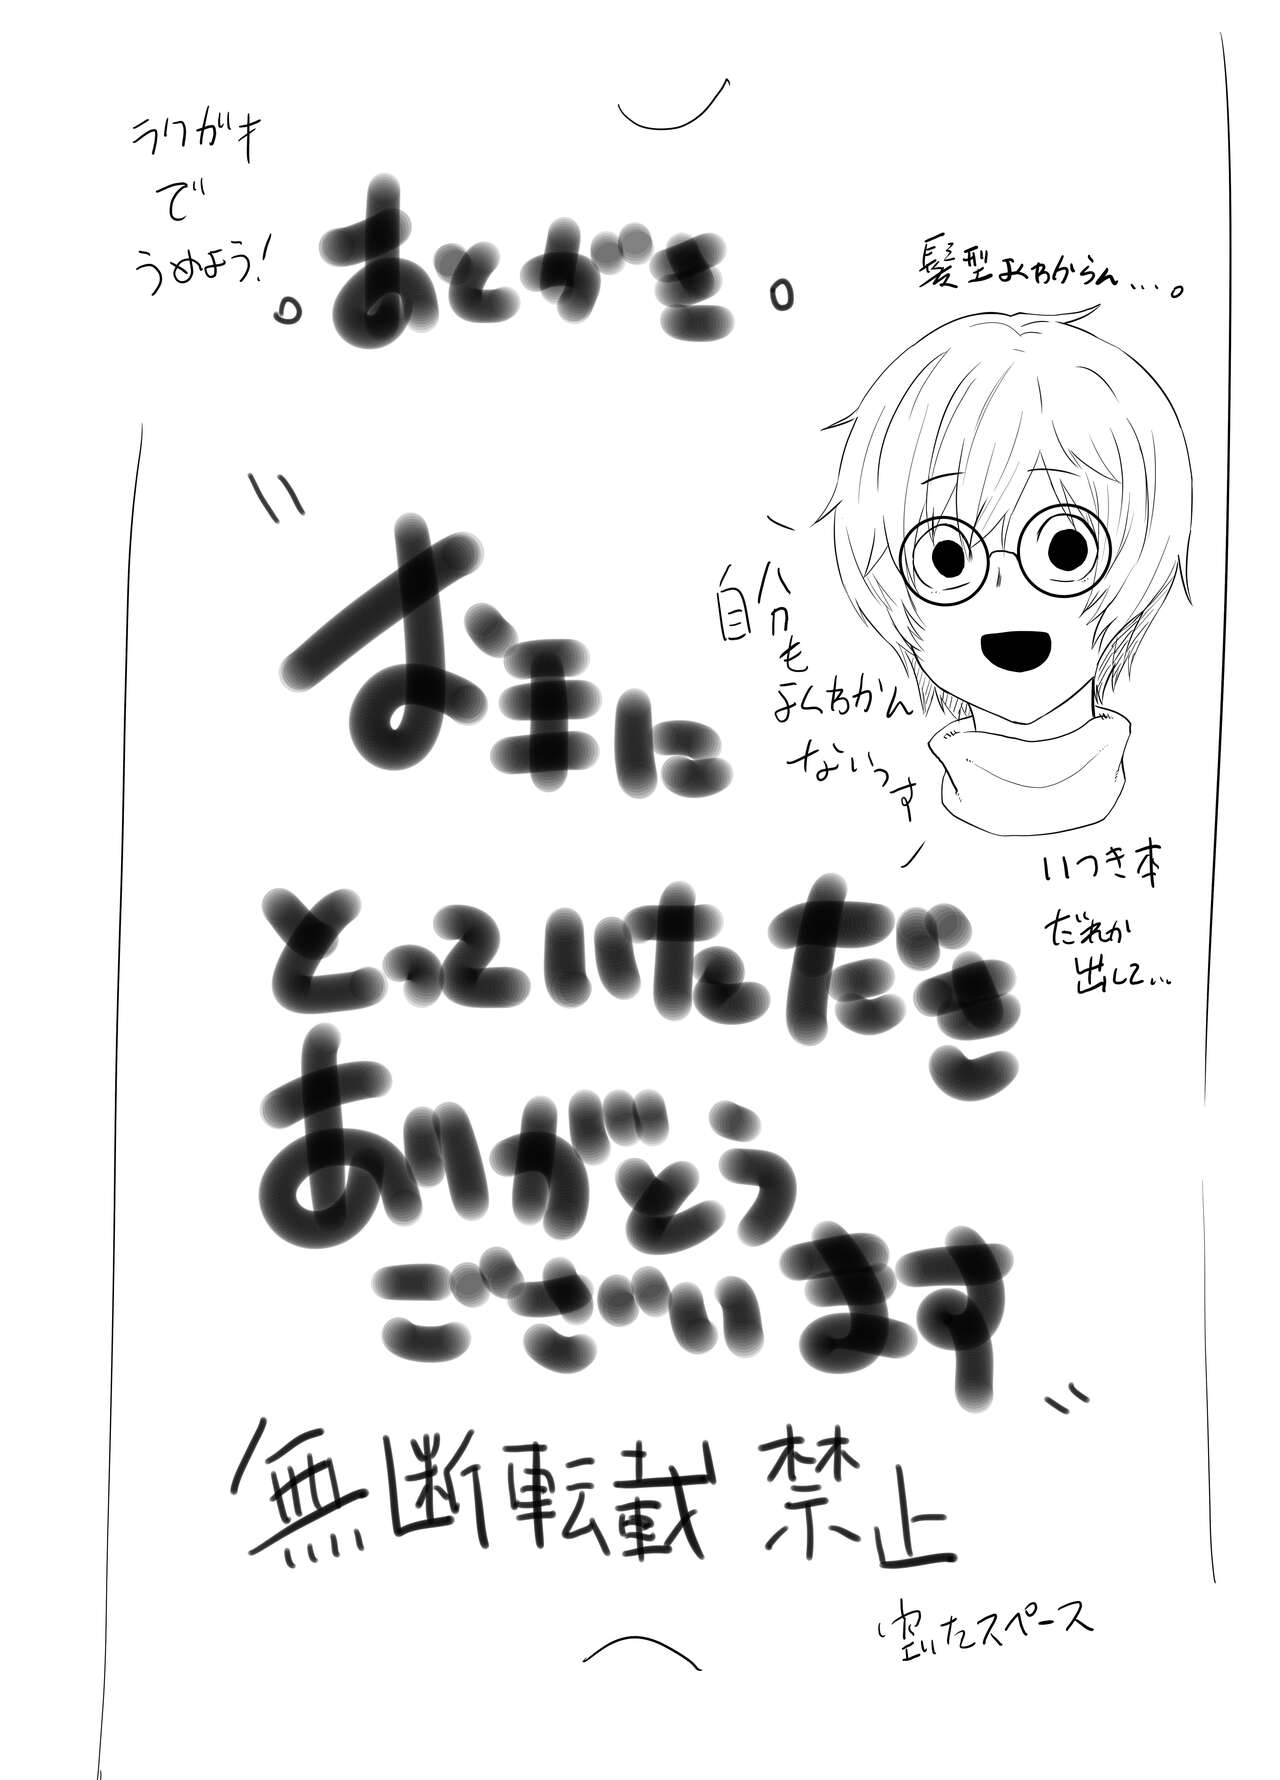 ラクガキ
で
うめよう!
。あとがき。
髪型よくわからん...。
自分
も
よくわかん
ないっす
いつき本
だれか
出して...
"お手に
とっていただき
ありがとう
ございます"
無断転載禁止
空いたスペース